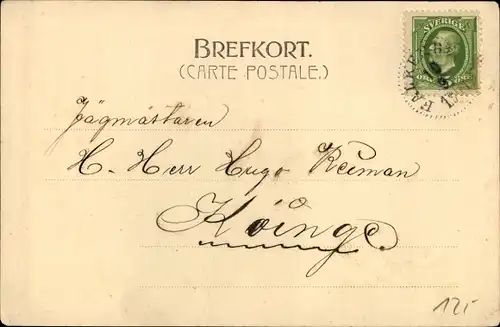 SVERIGE
BREFKORT.
(CARTE POSTALE.)
Jägmästaren
H. Herr Hugo Reiman
Köinge
125